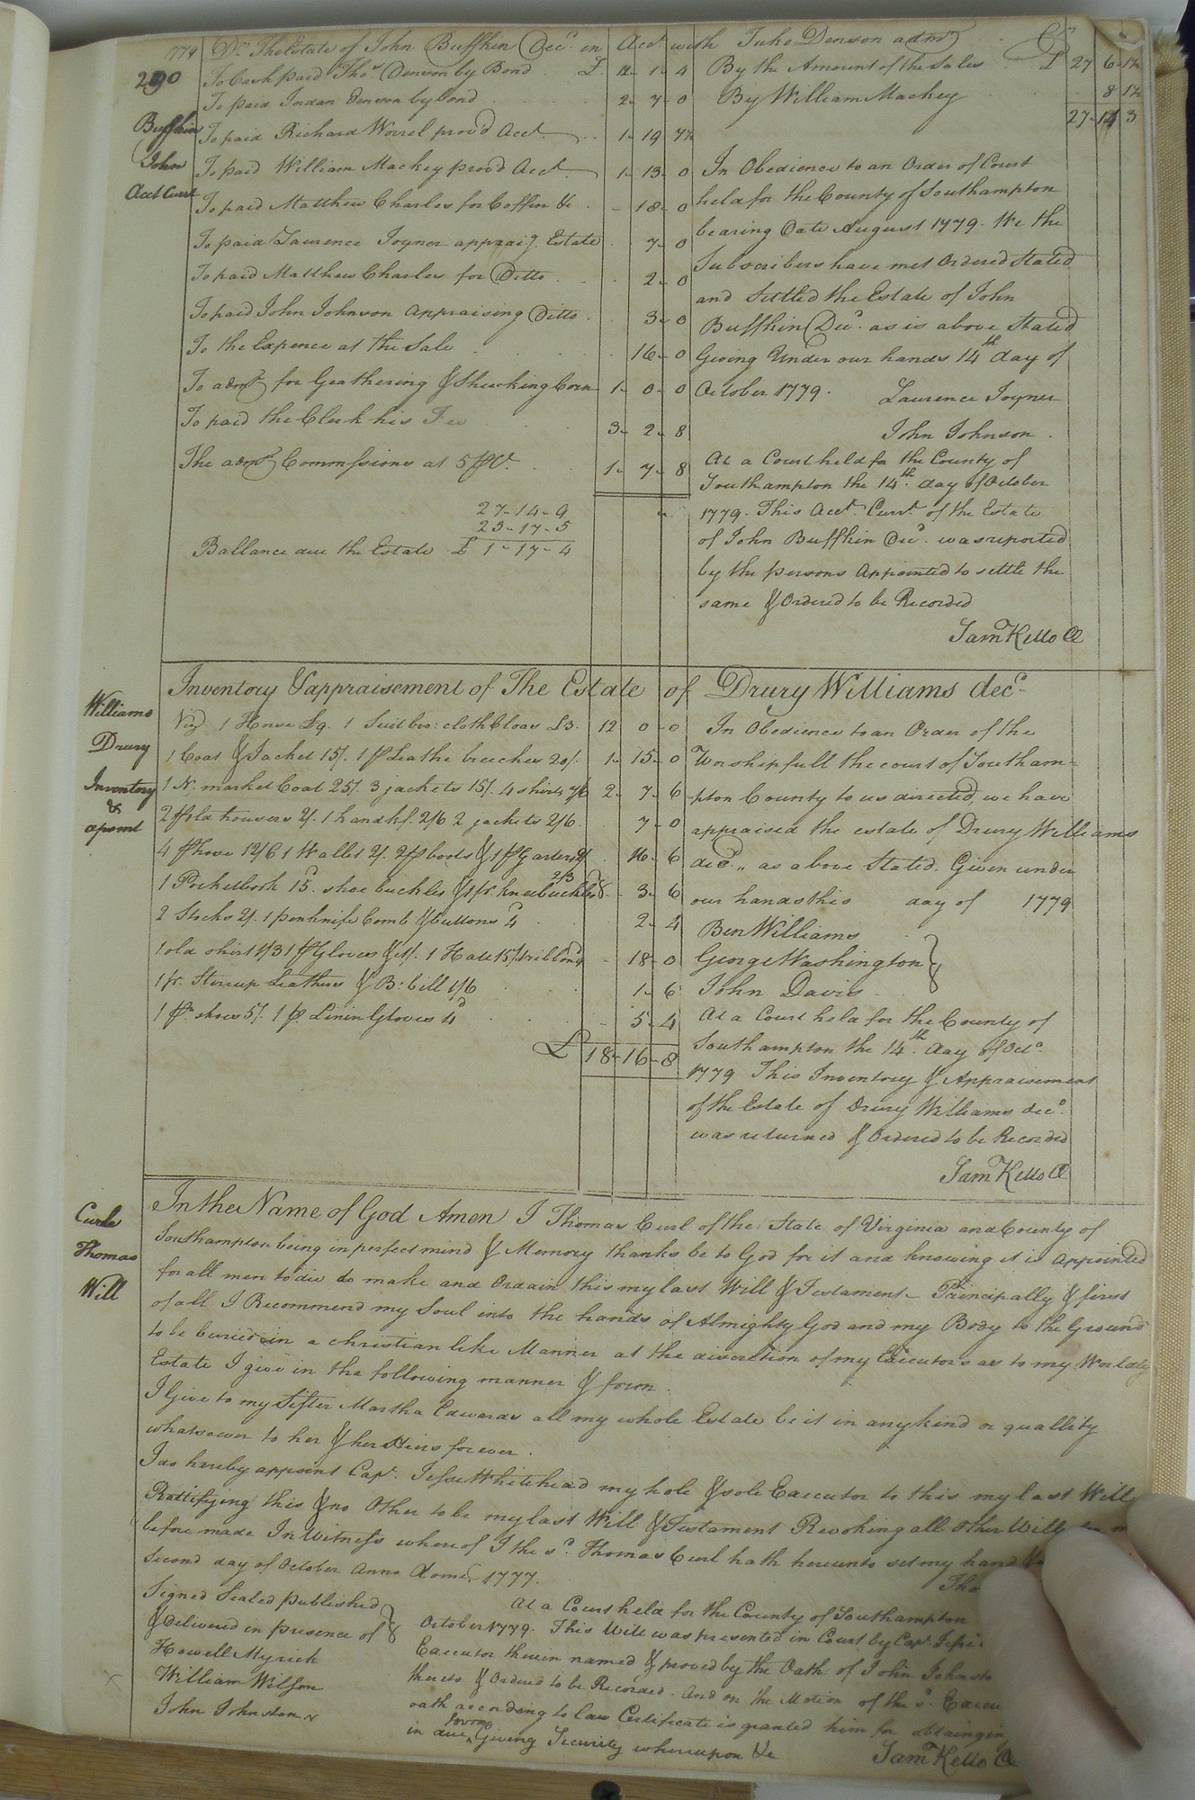 1779
290
Dr. The Estate of John Buffkin Dec.d in Acct with Juke Denson admr Cr
To Cash paid Thos Denson by Bond £ 12 1 4
To paid Jordan Denson by bond 2 7 0
To paid Richard Worrel prov'd Acct 1 19 7½
To paid William Mackey prov'd Acct 1 13 0
To paid Matthew Charles for Coffin &c 18 0
To paid Laurence Joyner apprai.g Estate 7 0
To paid Matthew Charles for Ditto 2 0
To paid John Johnson Appraising Ditto 3 0
To the Expence at the Sale 16 0
To admr for Geathering & Shucking Corn 1 0 0
To paid the Clerk his Fee 3 2 8
The admr Commissions at 5 1 7 8
27-14-9
25-17-5
Ballance due the Estate £ 1-17-4
Buffkin
John
Acct Curt
By the Amount of the Sales £ 27 6 1½
By William Mackey 8 1½
27 14 3
In Obedience to an Order of Court
held for the County of Southampton
bearing Date August 1779. We the
Subscribers have met Ordered Stated
and Settled the Estate of John
Buffkin Dec.d as is above Stated
Giving Under our hands 14th day of
October 1779. Laurence Joyner
John Johnson
At a Court held for the County of
Southampton the 14th day of October
1779. This Acct Currt of the Estate
of John Buffkin Dec.d was reported
by the persons Appointed to settle the
same & Ordered to be Recorded
Saml Kello Cl
Inventory & appraisement of The Estate of Drury Williams decd
Williams
Drury
Inventory
&
apsmt
Viz 1 Horse £9. 1 Suit bro: cloth Cloas £3. 12 0 0
1 Coat & Jacket 15/. 1 pr Leathe breeches 20/. 1 15 0
1 N. market Coat 25/. 3 jackets 15/. 4 shirts 7/6 2 7 6
2 pr old trousers 2/. 1 handkf. 2/6 2 jackets 2/6 7 0
4 pr hose 12/6 1 Wallet 2/. 2 pr boots & 1 pr Garters 2/ 16 6
1 Pocketbook 15d. shoe buckles & 1 pr. knee buckles 2/3 3 6
2 Stocks 2/. 1 penknife Comb & buttons 4d 2 4
1 old shirt 1/3 1 pr Gloves 1/. 1 Hatt 15/ 18 0
1 pr. Stirrup Leathers & B: bill 1/6 1 6
1 pr shoes 5/. 1 pr Linin Gloves 4d 5 4
£ 18-16-8
In Obedience to an Order of the
Worshipfull the court of Southam=
pton County to us directed, we have
appraised the estate of Drury Williams
decd. as above Stated. Given under
our hands this day of 1779
Ben Williams
George Washington
John Davis
At a Court held for the County of
Southampton the 14th day of Octo.
1779 This Inventory & Appraisement
of the Estate of Drury Williams decd.
was returned & Ordered to be Recorded
Saml Kello Cl
Curle
Thomas
Will
In the Name of God Amen I Thomas Curl of the State of Virginia and County of
Southampton being in perfect mind & Memory thanks be to God for it and knowing it is appointed
for all men to die do make and Ordain this my last Will & Testament Principally & first
of all I Recommend my Soul into the hands of Almighty God and my Body to the Ground
to be buried in a christian like Manner at the discretion of my Executors as to my Worldly
Estate I give in the following manner & form.
I Give to my Sister Martha Edwards all my whole Estate be it in any kind or quallity
whatsoever to her & her Heirs forever.
I do hereby appoint Capt. Jesse Whitehead my hole & sole Executor to this my last Will
Rattifying this & no Other to be my last Will & Testament Revoking all other Wills
before made In Witness whereof I the sd. Thomas Curl hath hereunto set my hand
Second day of October Anno Dome 1777.
Tho
Signed Sealed published
& delivered in presence of
Howell Myrick
William Wilson
John Johnston
At a Court held for the County of Southampton
October 1779. This Will was presented in Court by Capt Jesse
Executor therein named & proved by the Oath of John Johnsto
thereto & Ordered to be Recorded. And on the Motion of the sd. Execu
oath according to law Certificate is granted him for obtainging
in due form Giving Security whereupon &c
Saml Kello Cl